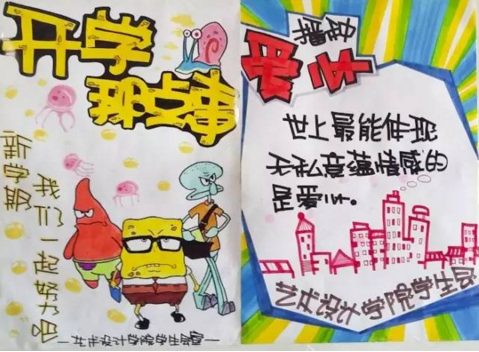 开学
那点事
新学期
我们一起努力吧
艺术设计学院学生会宣
世上最能体现
无私意蕴情感的
是爱心。
艺术设计学院学生会